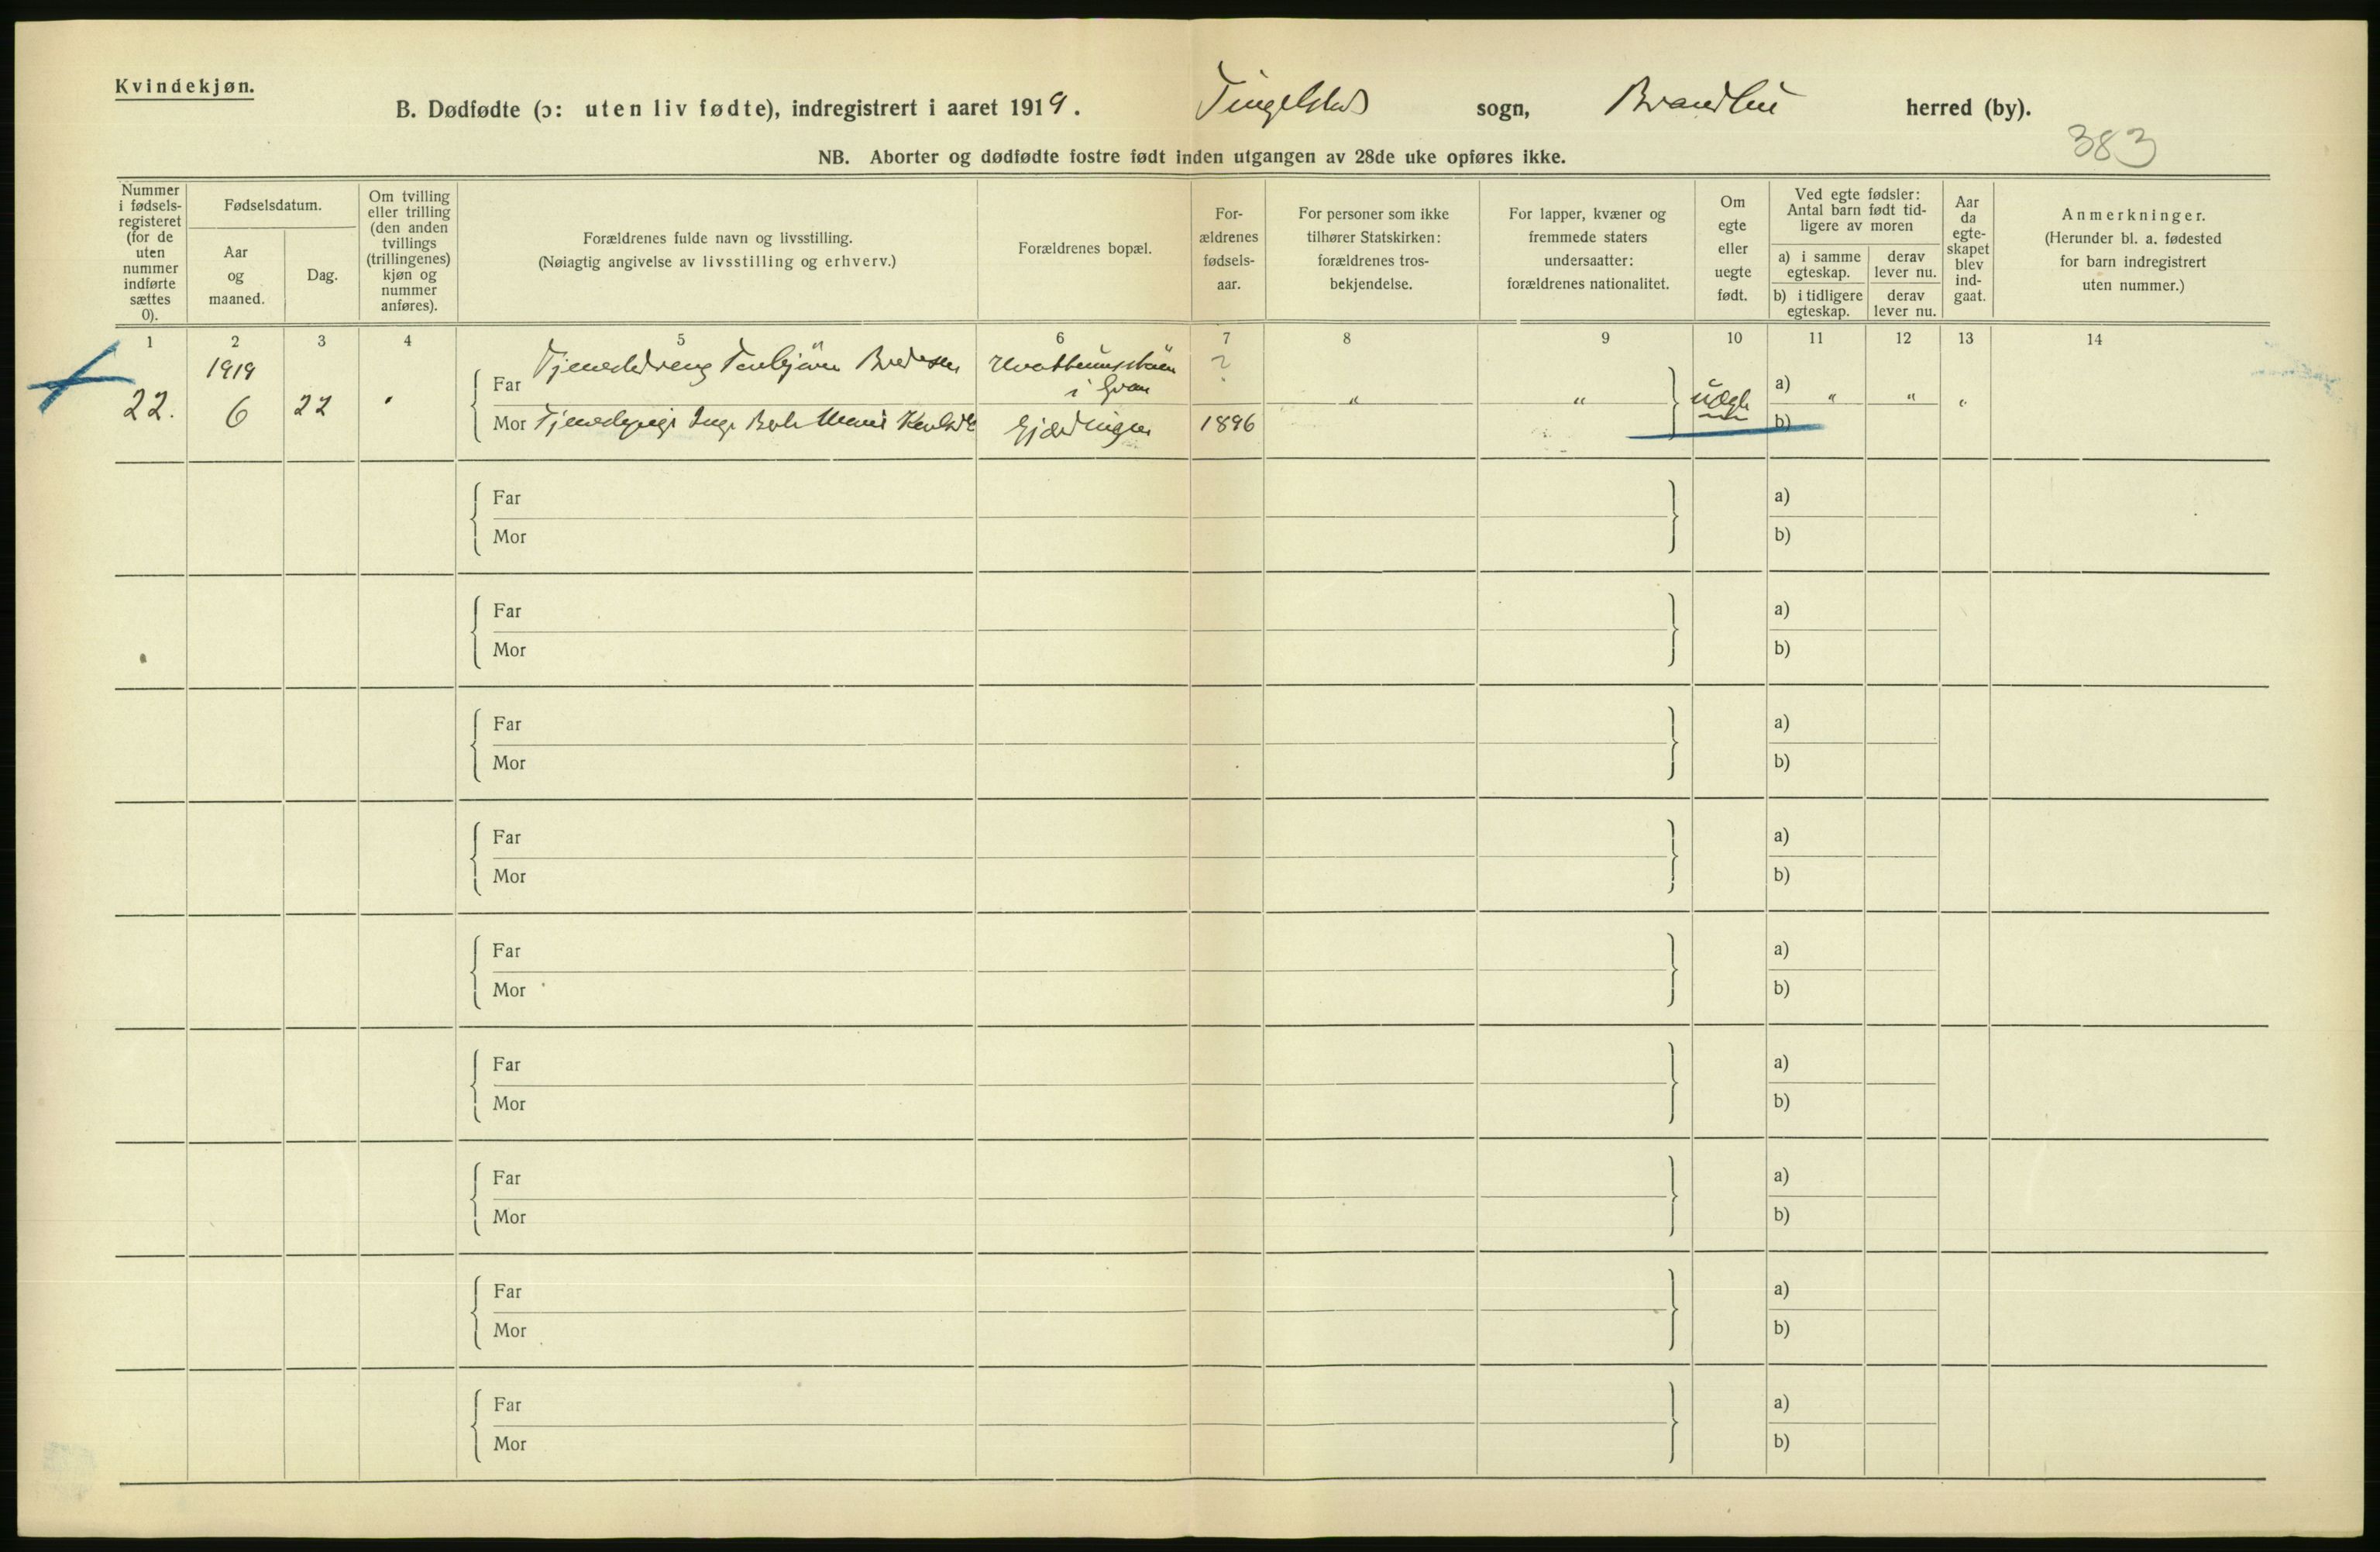 Kvindekjøn.
B. Dødfødte (ɔ: uten liv fødte), indregistrert i aaret 1919. Tingelstad sogn, Brandbu herred (by).
383
NB. Aborter og dødfødte fostre født inden utgangen av 28de uke opføres ikke.
Nummer i fødsels-registeret (for de uten nummer indførte sættes 0).
Fødselsdatum.
Aar og maaned.
Dag.
Om tvilling eller trilling (den anden tvillings (trillingenes) kjøn og nummer anføres).
Forældrenes fulde navn og livsstilling.
(Nøiagtig angivelse av livsstilling og erhverv.)
Forældrenes bopæl.
For-ældrenes fødsels-aar.
For personer som ikke tilhører Statskirken: forældrenes tros-bekjendelse.
For lapper, kvæner og fremmede staters undersaatter: forældrenes nationalitet.
Om egte eller uegte født.
Ved egte fødsler: Antal barn født tid-ligere av moren
a) i samme egteskap.
derav lever nu.
b) i tidligere egteskap.
derav lever nu.
Aar da egte-skapet blev ind-gaat.
Anmerkninger.
(Herunder bl. a. fødested for barn indregistrert uten nummer.)
1 2 3 4 5 6 7 8 9 10 11 12 13 14
1919
22. 6 22
Far Tjenestedreng Torbjörn Bredesen
i Gran ?
" " uegte a) " " "
Mor Tjenestepige Inga Marie
1896 b)
Far a)
Mor b)
Far a)
Mor b)
Far a)
Mor b)
Far a)
Mor b)
Far a)
Mor b)
Far a)
Mor b)
Far a)
Mor b)
Far a)
Mor b)
Far a)
Mor b)